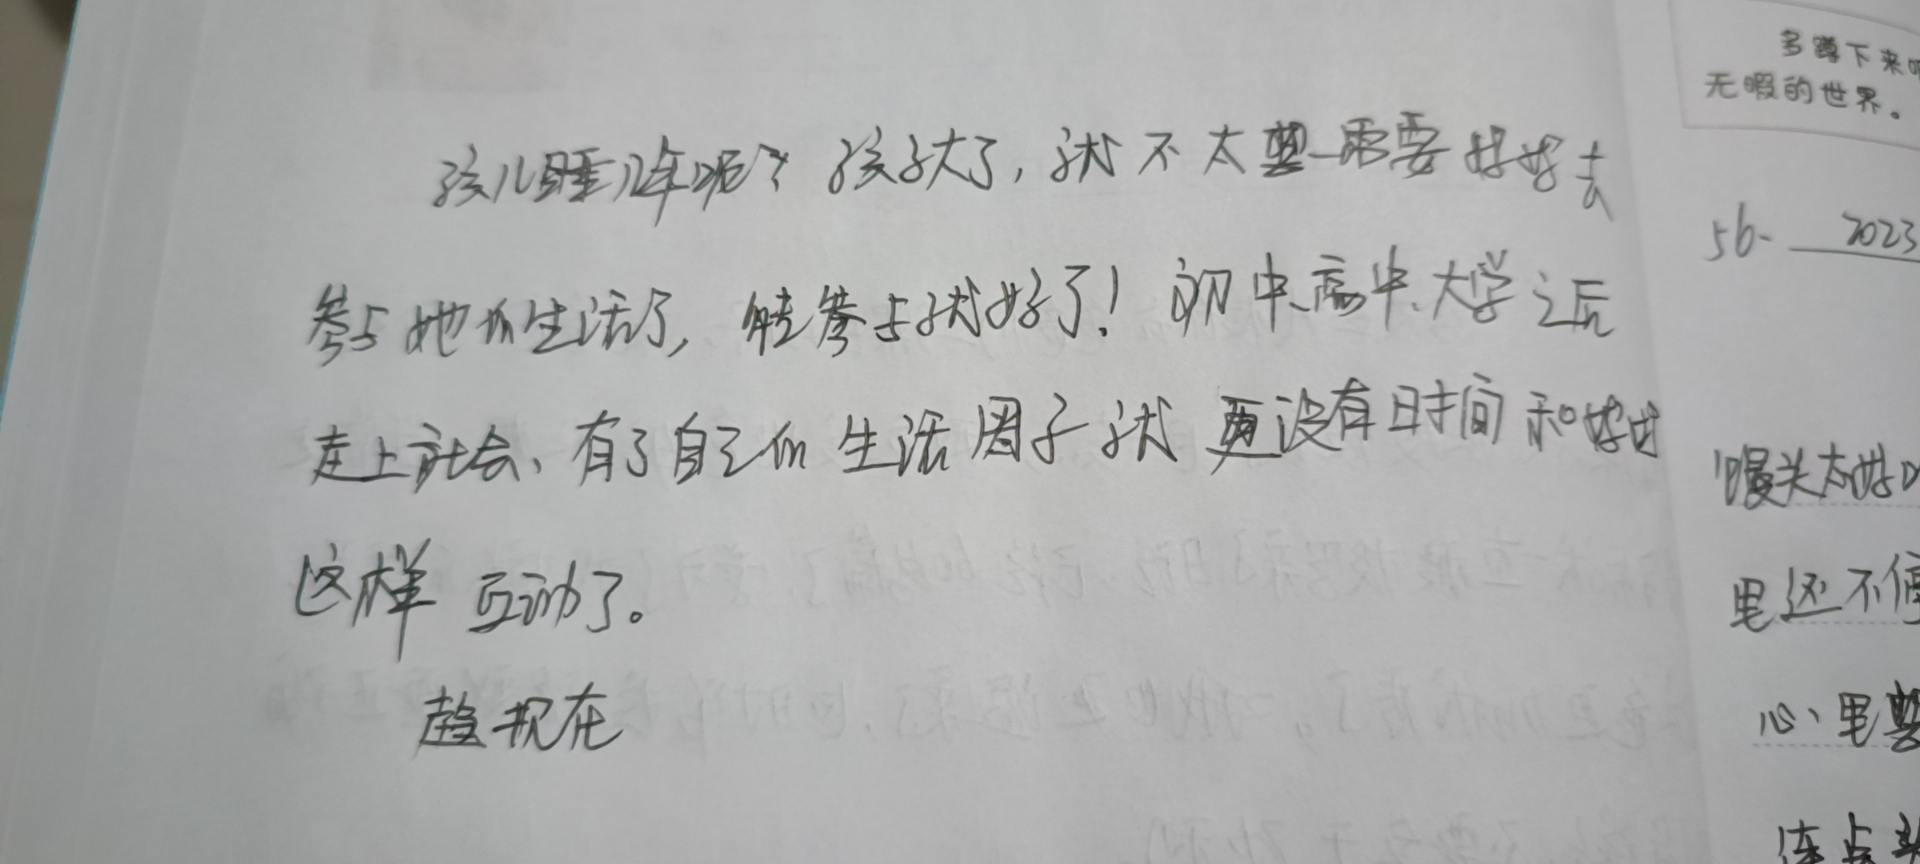 孩儿睡几年呢？孩子大了，就不太需要妈妈去
参与她的生活了，能参与就好了！初中、高中、大学之后
走上社会、有了自己的生活圈子就更没有时间和妈妈
这样互动了。
趁现在
多蹲下来
无暇的世界。
56- 2023
馒头太好
里还不停
心里
连点